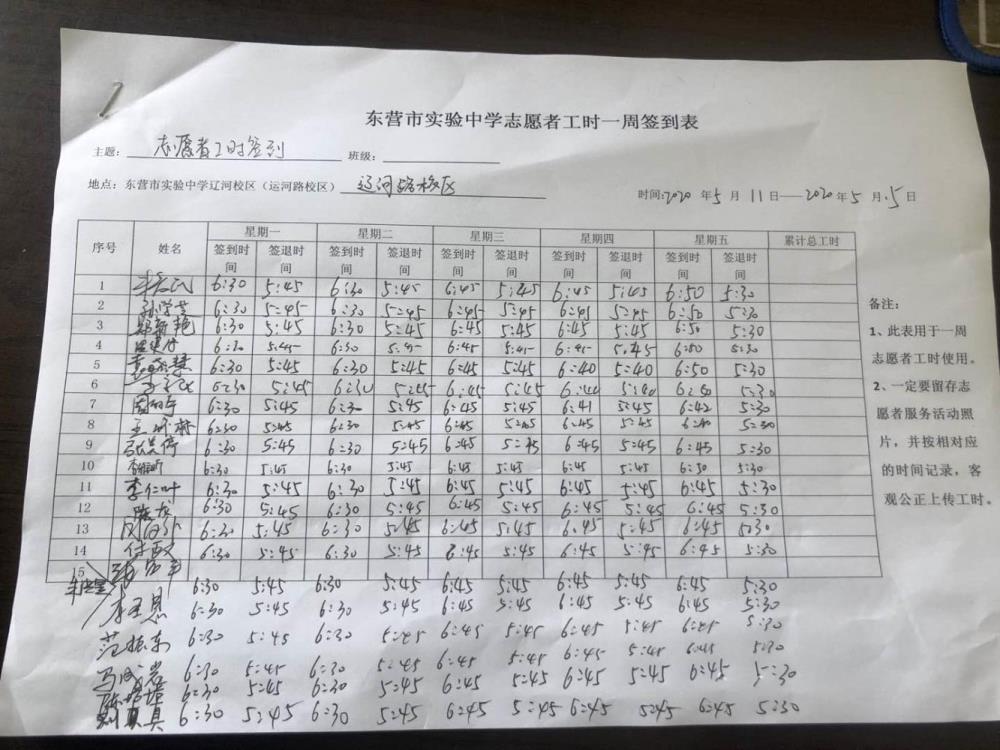 东营市实验中学志愿者工时一周签到表
主题: 志愿者工时签到 班级:
地点: 东营市实验中学辽河校区（运河路校区） 辽河路校区 时间:2020 年5月 11日——2020年5月15日
序号 姓名 星期一 星期二 星期三 星期四 星期五 累计总工时
签到时间 签退时间 签到时间 签退时间 签到时间 签退时间 签到时间 签退时间 签到时间 签退时间
1 6:30 5:45 6:30 5:45 6:45 5:45 6:45 5:45 6:50 5:30
2 6:30 5:45 6:30 5:45 6:45 5:45 6:45 5:45 6:50 5:30
3 6:30 5:45 6:30 5:45 6:45 5:45 6:45 5:45 6:50 5:30
4 6:30 5:45 6:30 5:45 6:45 5:45 6:45 5:45 6:50 5:30
5 6:30 5:45 6:30 5:45 6:45 5:45 6:40 5:40 6:50 5:30
6 6:30 5:45 6:30 5:45 6:45 5:45 5:30
7 6:30 5:45 6:30 5:45 6:45 5:45 6:41 5:45 6:42 5:30
8 6:30 5:45 6:30 5:45 6:45 5:45 6:45 5:45 5:30
9 6:30 5:45 6:30 5:45 6:45 5:45 6:45 5:45 6:45 5:30
10 6:30 5:45 6:30 5:45 6:45 5:45 6:45 5:45 6:50 5:30
11 李仁叶 6:30 5:45 6:30 5:45 6:45 5:45 6:45 5:45 6:45 5:30
12 6:30 5:45 6:30 5:45 6:45 5:45 6:45 5:45 6:45 5:30
13 6:30 5:45 6:30 5:45 6:45 5:45 6:45 5:45 6:45 5:30
14 6:30 5:45 6:30 5:45 6:45 5:45 6:45 5:45 6:45 5:30
15
6:30 5:45 6:30 5:45 6:45 5:45 6:45 5:45 6:45 5:30
6:30 5:45 6:30 5:45 6:45 5:45 6:45 5:45 6:45 5:30
范振东 6:30 5:45 6:30 5:45 6:45 5:45 6:45 5:45 6:45 5:30
6:30 5:45 6:30 5:45 6:45 5:45 6:45 5:45 6:45 5:30
6:30 5:45 6:30 5:45 6:45 5:45 6:45 5:45 6:45 5:30
6:30 5:45 6:30 5:45 6:45 5:45 6:45 5:45 6:45 5:30
备注:
1、此表用于一周
志愿者工时使用。
2、一定要留存志
愿者服务活动照
片，并按相对应
的时间记录，客
观公正上传工时。